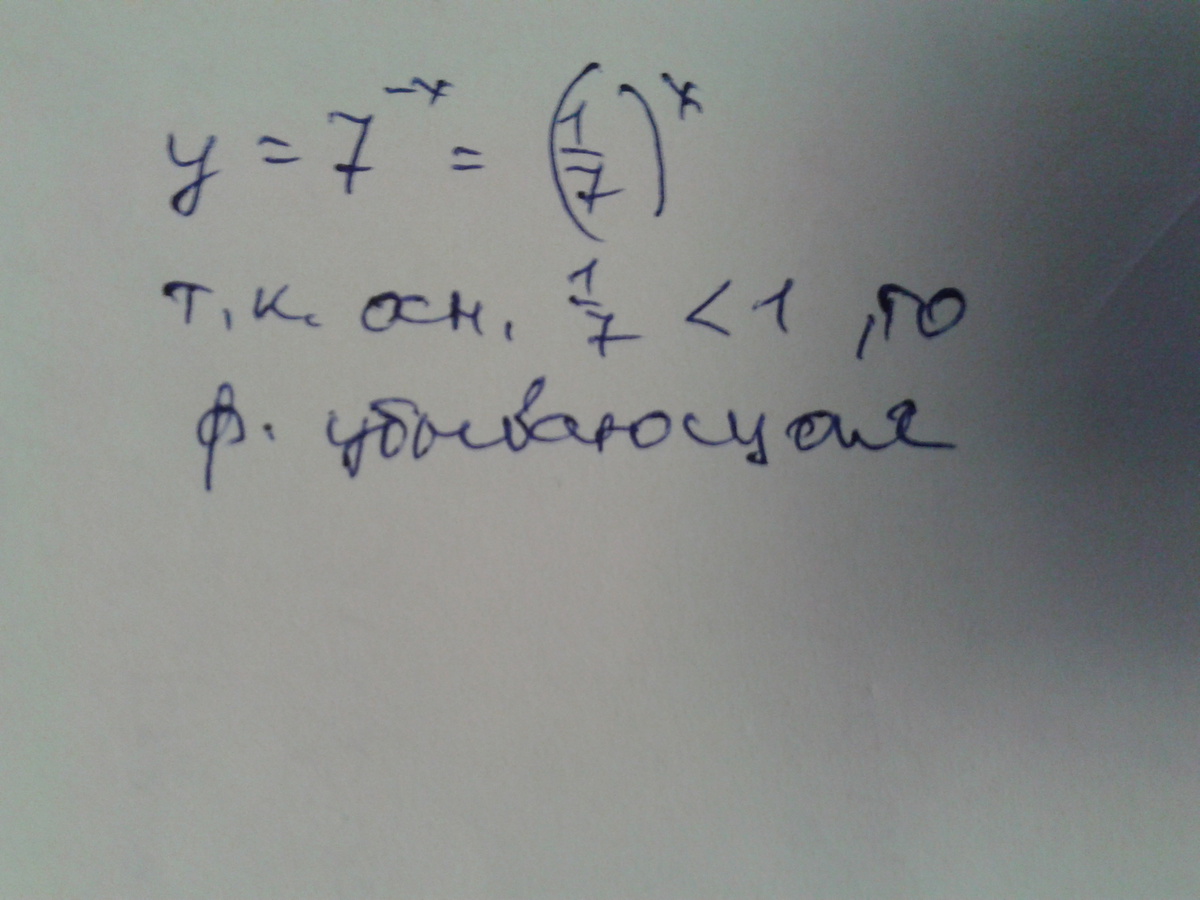 y = 7^{-x} = (1/7)^x
т.к. осн. 1/7 < 1, то
ф. убывающая